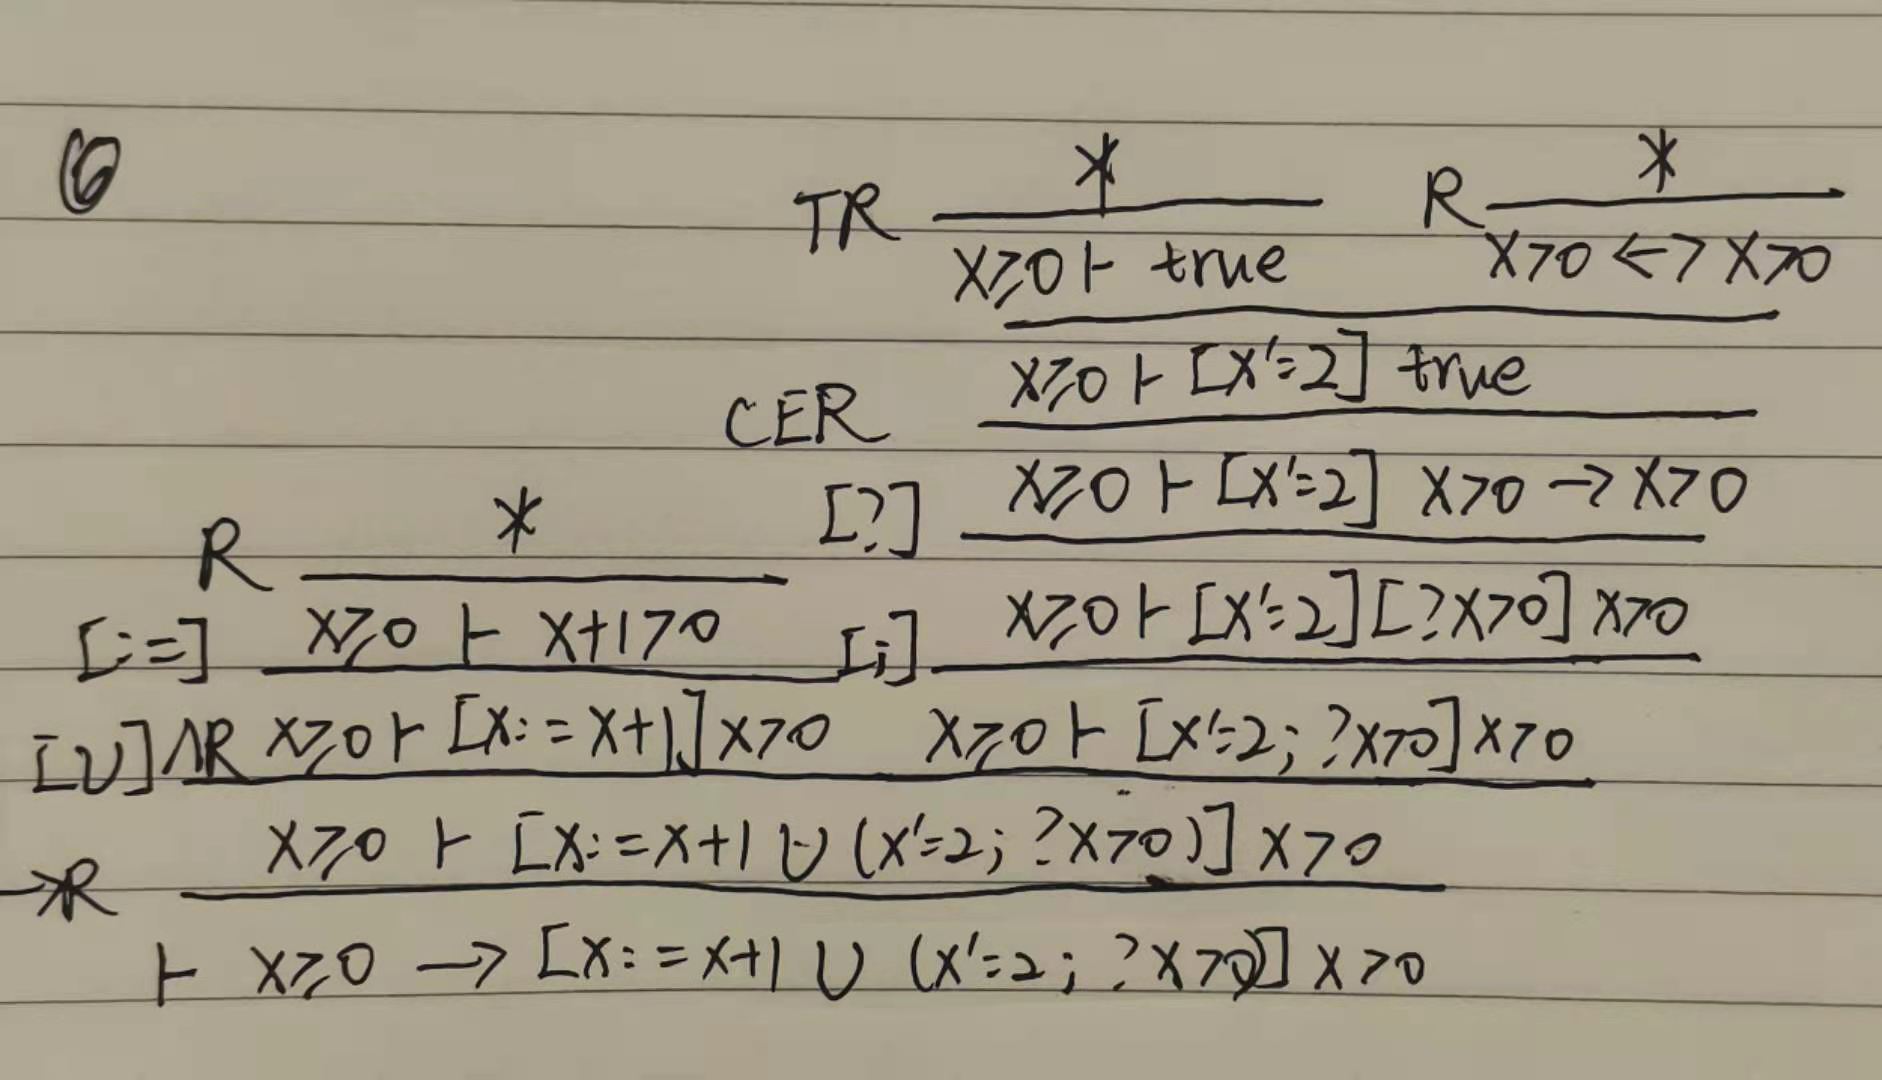 ⑥
TR * R *
x≥0 ⊢ true x>0 <-> x>0
x≥0 ⊢ [x'=2] true
CER
x≥0 ⊢ [x'=2] x>0 → x>0
[?]
R *
x≥0 ⊢ [x'=2][?x>0] x>0
[:=] x≥0 ⊢ x+1>0 [;]
[∪]∧R x≥0 ⊢ [x:=x+1]x>0 x≥0 ⊢ [x'=2; ?x>0]x>0
x≥0 ⊢ [x:=x+1 ∪ (x'=2; ?x>0)] x>0
→R
⊢ x≥0 → [x:=x+1 ∪ (x'=2; ?x>0)] x>0